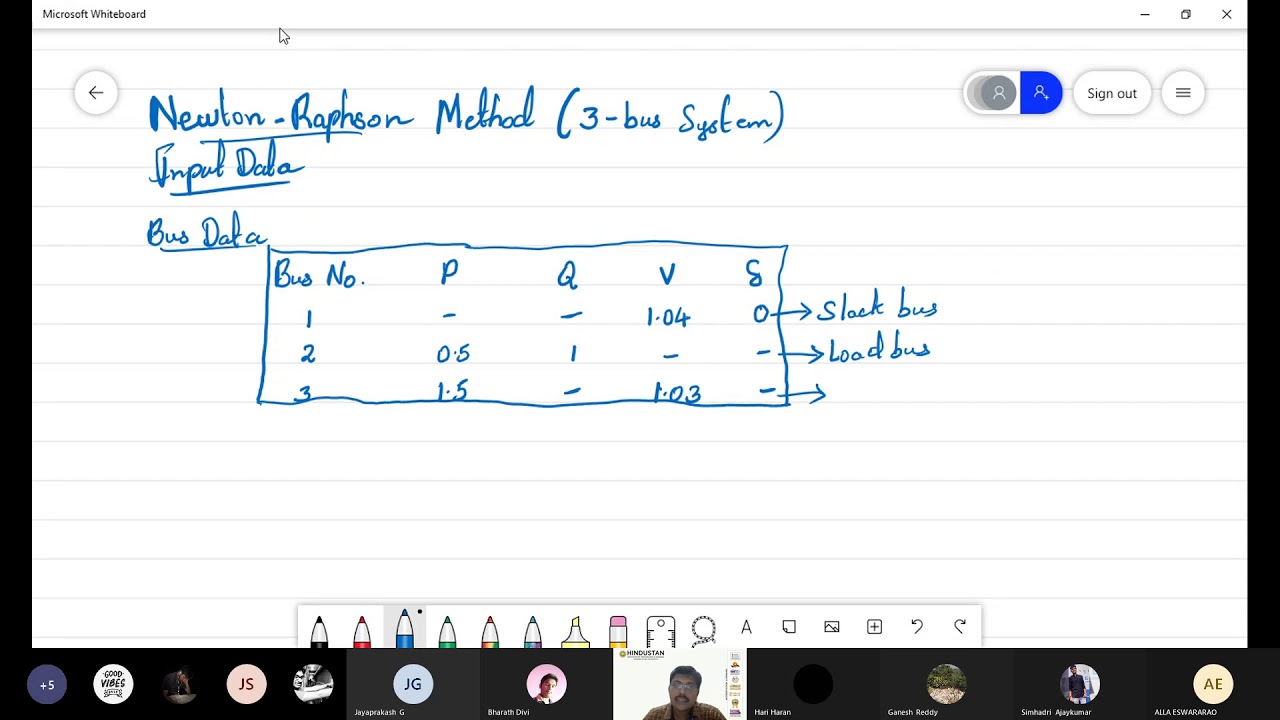 Microsoft Whiteboard
Sign out
Newton-Raphson Method (3-bus System)
Input Data
Bus Data
Bus No. P Q V δ
1 - - 1.04 0 → Slack bus
2 0.5 1 - - → Load bus
3 1.5 - 1.03 - →
A
+5
GOOD
VIBES
JS
JG
HINDUSTAN
AE
Jayaprakash G
Bharath Divi
Hari Haran
Ganesh Reddy
Simhadri Ajaykumar
ALLA ESWARARAO